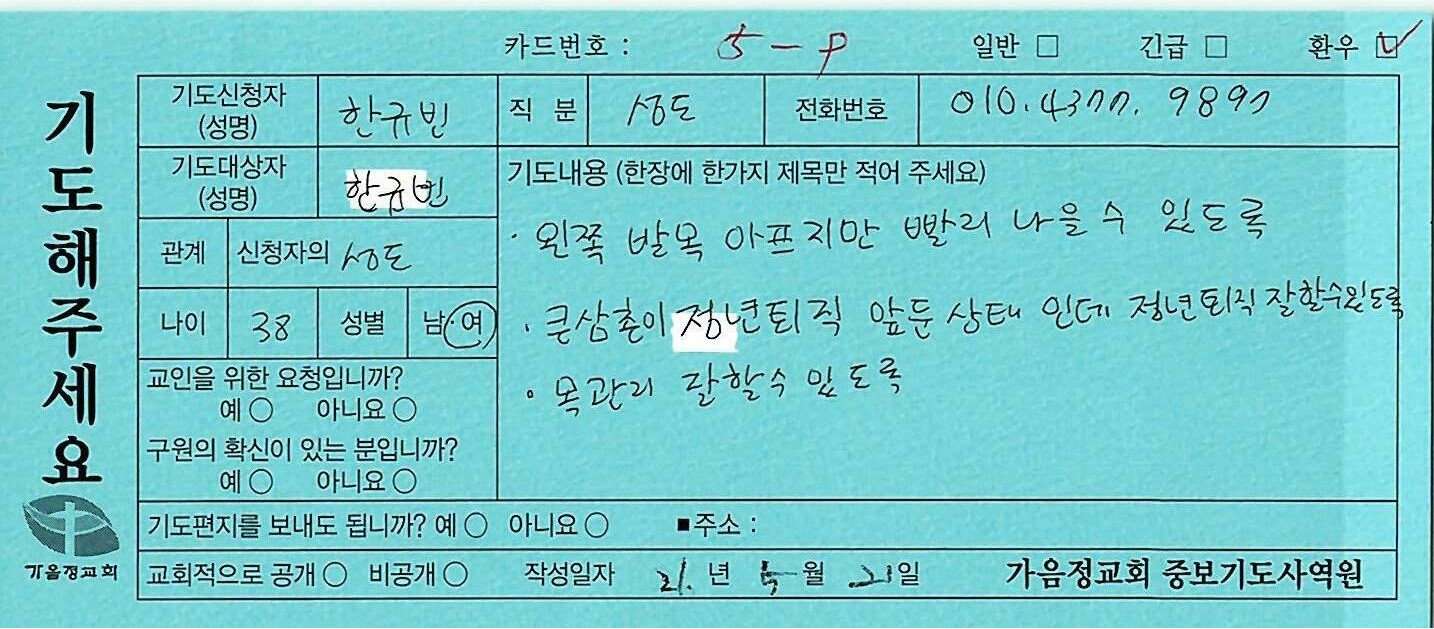 카드번호 : 5-9 일반 □ 긴급 □ 환우 ☑
기도해주세요
기도신청자 (성명) 한규빈 직 분 성도 전화번호 010.4377.9897
기도대상자 (성명) 한규빈
기도내용 (한장에 한가지 제목만 적어 주세요)
· 왼쪽 발목 아프지만 빨리 나을 수 있도록
관계 신청자의 성도
나이 38 성별 남·여
· 큰삼촌이 정년퇴직 앞둔 상태 인데 정년퇴직 잘할수있도록
· 목관리 잘할수 있도록
교인을 위한 요청입니까?
예 ○ 아니요 ○
구원의 확신이 있는 분입니까?
예 ○ 아니요 ○
기도편지를 보내도 됩니까? 예 ○ 아니요 ○ ■주소 :
교회적으로 공개 ○ 비공개 ○ 작성일자 21. 년 5 월 21일 가음정교회 중보기도사역원
가음정교회